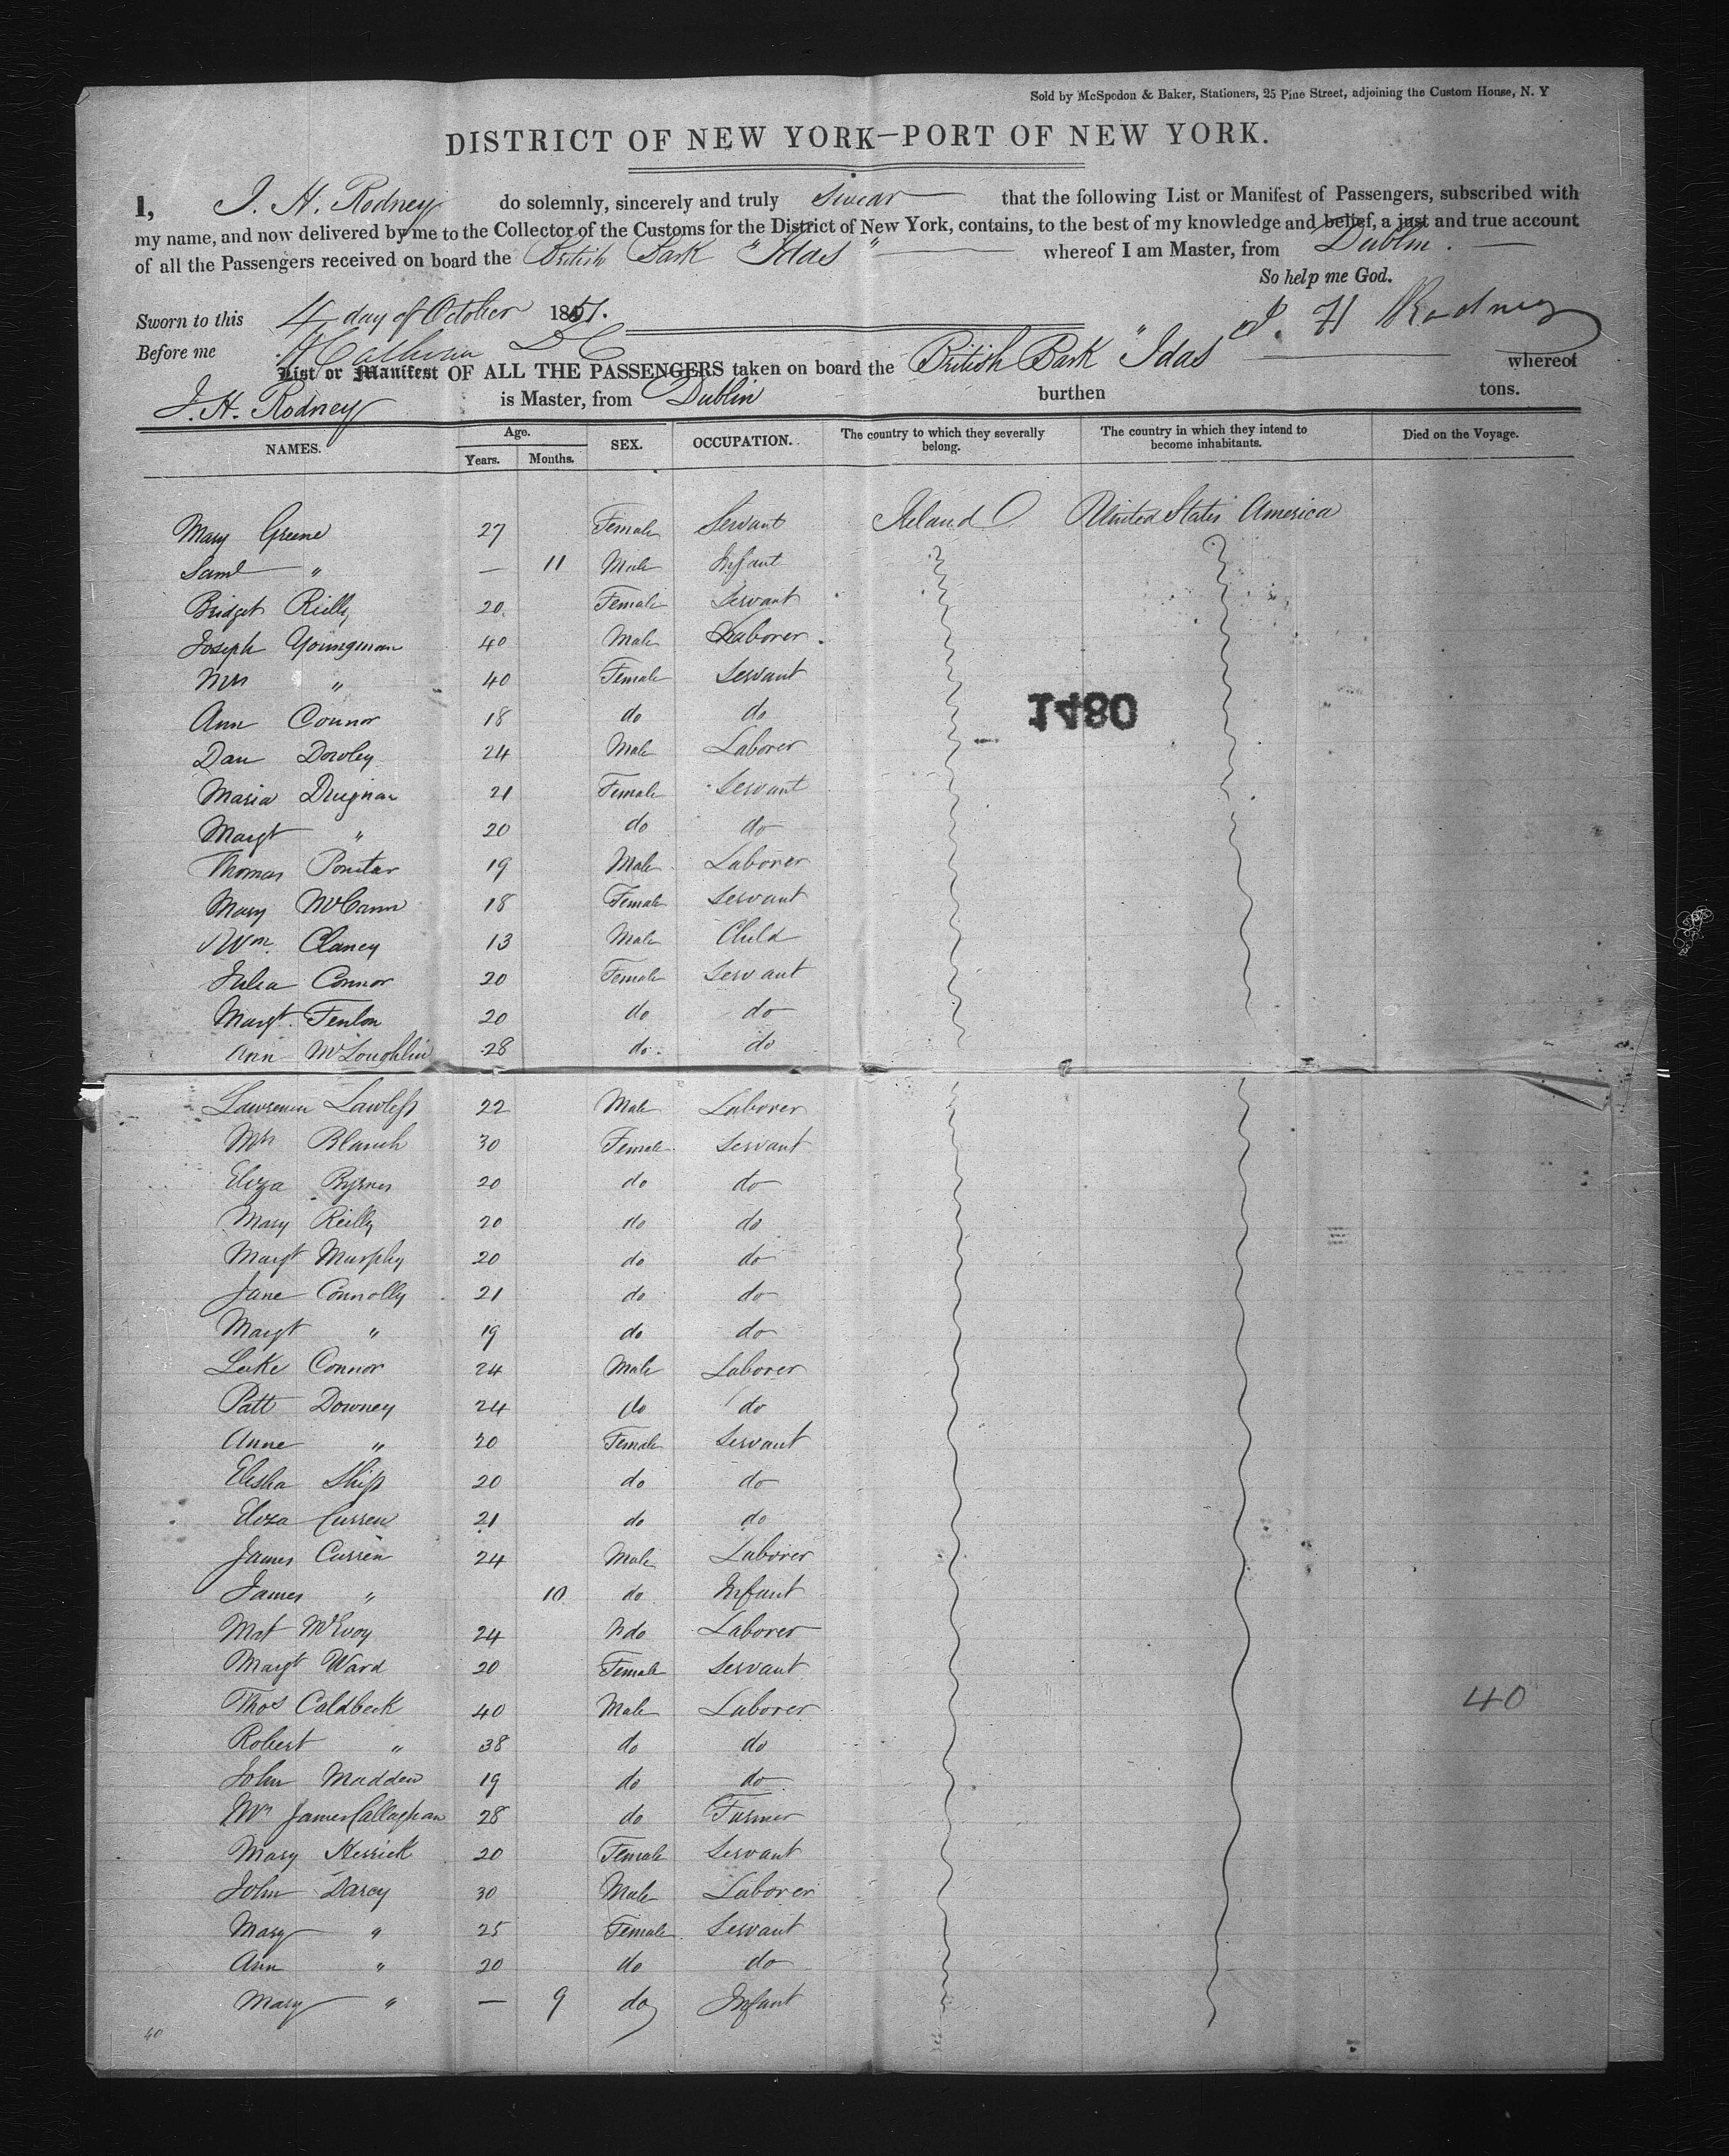 Sold by McSpedon & Baker, Stationers, 25 Pine Street, adjoining the Custom House, N. Y
DISTRICT OF NEW YORK—PORT OF NEW YORK.
I, J. H. Rodney do solemnly, sincerely and truly swear that the following List or Manifest of Passengers, subscribed with
my name, and now delivered by me to the Collector of the Customs for the District of New York, contains, to the best of my knowledge and belief, a just and true account
of all the Passengers received on board the British Bark "Idas" whereof I am Master, from Dublin.
So help me God.
Sworn to this 4 day of October 1851. J. H Rodney
Before me
List or Manifest OF ALL THE PASSENGERS taken on board the British Bark "Idas whereof
J. H. Rodney is Master, from Dublin burthen tons.
NAMES. Age. Years. Months. SEX. OCCUPATION. The country to which they severally belong. The country in which they intend to become inhabitants. Died on the Voyage.
Mary Greene 27 Female Servant Ireland United States America
Saml " — 11 Male Infant
Bridget Reilly 20 Female Servant
Joseph Youngman 40 Male Laborer
Mrs " 40 Female Servant
1480
Ann Connor 18 do do
Dan Dowley 24 Male Laborer
Maria Duignan 21 Female Servant
Margt " 20 do do
Thomas 19 Male Laborer
Mary McCann 18 Female Servant
Wm. Clancy 13 Male Child
Julia Connor 20 Female Servant
Margt. Fenlon 20 do do
Ann McLoughlin 28 do. do
Lawrence Lawless 22 Male Laborer
Mrs Blanch 30 Female Servant
Eliza Byrnes 20 do do
Mary Reilly 20 do do
Margt Murphy 20 do do
Jane Connolly 21 do do
Margt " 19 do do
Luke Connor 24 Male Laborer
Patt Downey 24 do do
Anne " 20 Female Servant
Elisha 20 do do
Eliza Curren 21 do do
James Curren 24 Male Laborer
James " 10 do Infant
Mat McEvoy 24 do Laborer
Margt Ward 20 Female Servant
Thos Caldbeck 40 Male Laborer 40
Robert " 38 do do
John Madden 19 do do
Mr James Callaghan 28 do Farmer
Mary Kerrick 20 Female Servant
John Darcy 30 Male Laborer
Mary " 25 Female Servant
Ann " 20 do do
Mary " — 9 do Infant
40